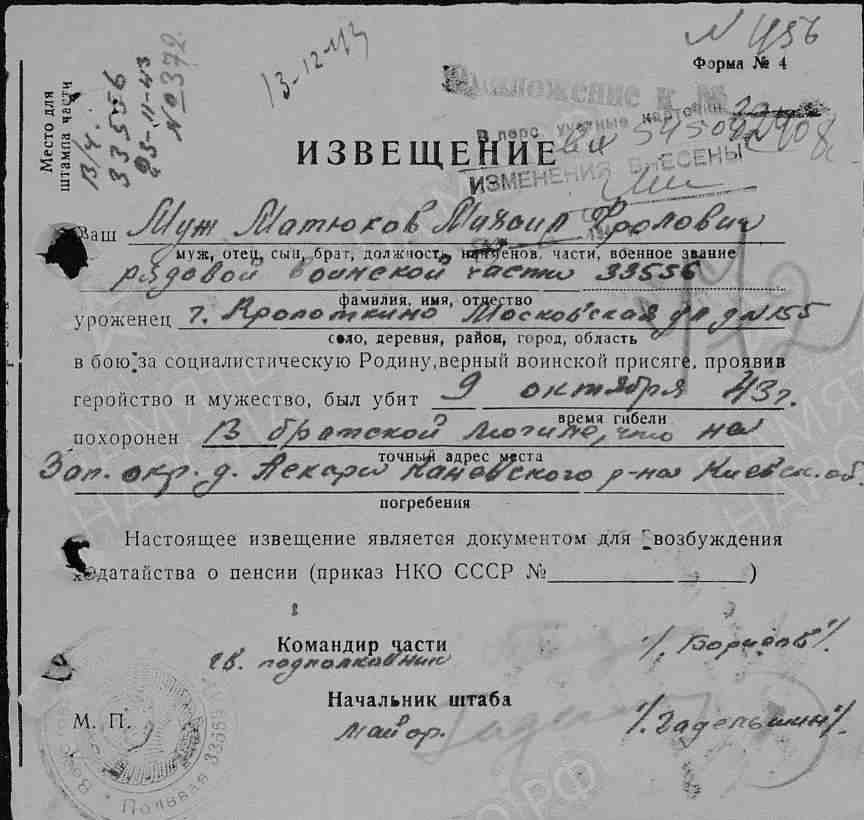 N 456
Форма № 4
13-12-43
Место для
штампа части
В/ч.
33556
25-11-43
№ 0372
Приложение к №
В перс. учетные карточки
54508
ИЗМЕНЕНИЯ ВНЕСЕНЫ
ИЗВЕЩЕНИЕ
Ваш Муж Матюков Михаил Фролович
муж, отец, сын, брат, должность, наименов. части, военное звание
рядовой воинской части 33556
фамилия, имя, отчество
уроженец г. Кропоткино Московская ул д № 155
село, деревня, район, город, область
в бою за социалистическую Родину, верный воинской присяге, проявив
геройство и мужество, был убит 9 октября 43 г.
время гибели
похоронен В братской могиле, что на
точный адрес места
Зап. окр. д. Пекари Каневского р-на Киевск. об.
погребения
Настоящее извещение является документом для возбуждения
ходатайства о пенсии (приказ НКО СССР № )
Командир части /Борисов/
гв. подполковник
Начальник штаба
М. П. майор. /Гадельшин/
Полевая